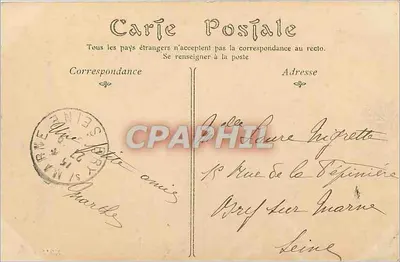 Carte Postale
Tous les pays étrangers n'acceptent pas la correspondance au recto.
Se renseigner à la poste
Correspondance
Adresse
Une petite amie
Marthe
Mlle Laure
15 Rue de la Pépinière
Bry sur Marne
Seine
BRY S/ MARNE
SEINE
CPAPHIL